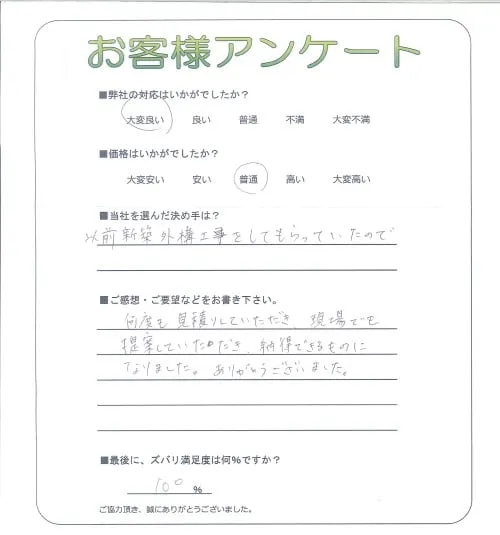 お客様アンケート
■弊社の対応はいかがでしたか？
大変良い 良い 普通 不満 大変不満
■価格はいかがでしたか？
大変安い 安い 普通 高い 大変高い
■当社を選んだ決め手は？
以前新築外構工事をしてもらっていたので
■ご感想・ご要望などをお書き下さい。
何度も見積りしていただき、現場でも
提案していただき、納得できるものに
なりました。ありがとうございました。
■最後に、ズバリ満足度は何%ですか？
100 %
ご協力頂き、誠にありがとうございました。